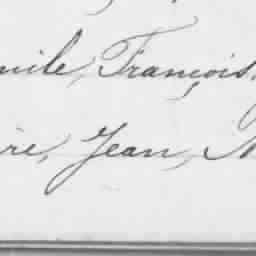 mile, François,
ire, Jean, N